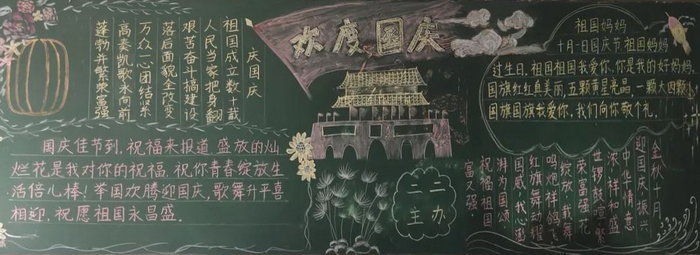 欢度国庆
庆国庆
祖国成立数十载
人民当家把身翻
艰苦奋斗搞建设
落后面貌全改变
万众一心团结紧
高奏凯歌永向前
蓬勃并繁荣富强
国庆佳节到,祝福来报道.盛放的灿
烂花是我对你的祝福.祝你青春绽放生
活倍儿棒!举国欢腾迎国庆,歌舞升平喜
相迎.祝愿祖国永昌盛.
二二
主办
祖国妈妈
十月一日国庆节.祖国妈妈
过生日.祖国祖国我爱你,你是我的好妈妈.
国旗红红真美丽.五颗黄星亮晶.一颗大四颗小
国旗国旗我爱你,我们向你敬个礼.
金秋十月
国庆振兴
中华情意
浓.祥和盛
世锣鼓喧繁
荣富强花
绽放.我舞
鸣炮祥鸽飞
红旗舞动耀
国威.我心
湃为国颂
祝福祖国
富又强.